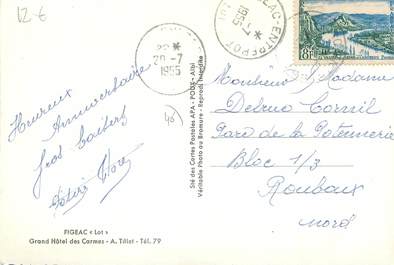 12-6
Heureux
Anniversaire
Gros baisers
22 *
20-7
1955
1955
ENTREPOT
8F
46
Sté des Cartes Postales APA - POUX - Albi
Véritable Photo au Bromure - Reprods Interdite
Monsieur Madame
Delrue
Parc de la Potennerie
Bloc 1/3
Roubaix
Nord
FIGEAC « Lot »
Grand Hôtel des Carmes - A. Tillet - Tél. 79